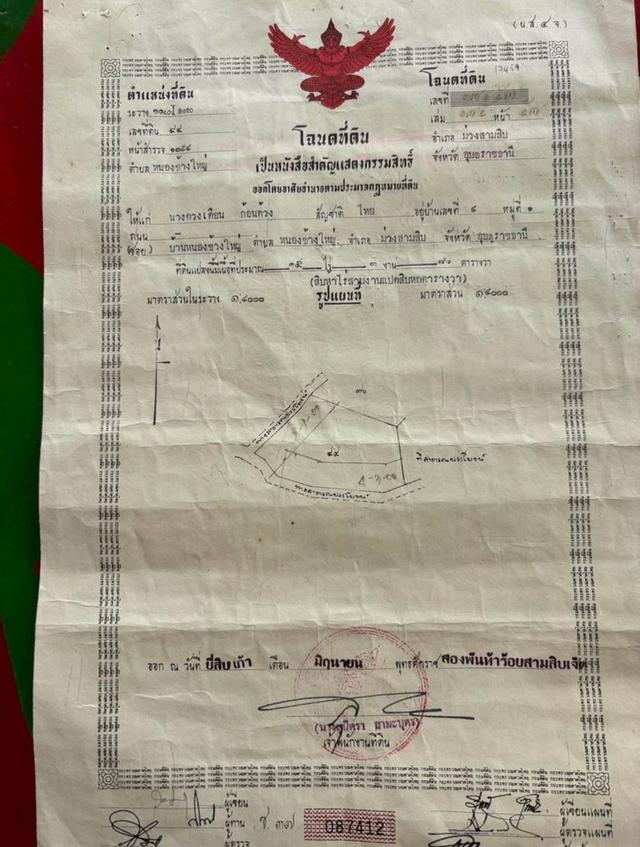 (น.ส.๔ จ.)
ตำแหน่งที่ดิน
ระวาง
เลขที่ดิน ๔๔
หน้าสำรวจ ๑๓๙๔
ตำบล หนองช้างใหญ่
โฉนดที่ดิน
เลขที่
เล่ม หน้า
อำเภอ ม่วงสามสิบ
จังหวัด อุบลราชธานี
โฉนดที่ดิน
เป็นหนังสือสำคัญแสดงกรรมสิทธิ์
ออกโดยอาศัยอำนาจตามประมวลกฎหมายที่ดิน
ให้แก่ นางดวงเดือน ก้อนด้วง สัญชาติ ไทย อยู่บ้านเลขที่ ๘ หมู่ที่ ๑
ถนน (ซอย) บ้านหนองช้างใหญ่ ตำบล หนองช้างใหญ่ อำเภอ ม่วงสามสิบ จังหวัด อุบลราชธานี
ที่ดินแปลงนี้มีเนื้อที่ประมาณ ๑๕ ไร่ ๓ งาน ๘๖ ตารางวา
(สิบห้าไร่สามงานแปดสิบหกตารางวา)
มาตราส่วนในระวาง ๑:๔๐๐๐ รูปแผนที่ มาตราส่วน ๑:๔๐๐๐
๓๐
ทางสาธารณประโยชน์
๔๔
ที่สาธารณประโยชน์
ทางสาธารณประโยชน์
ออก ณ วันที่ ยี่สิบเก้า เดือน มิถุนายน พุทธศักราช สองพันห้าร้อยสามสิบเจ็ด
เจ้าพนักงานที่ดิน
ผู้เขียน
ผู้ทาน
ผู้ตรวจ
087412
ผู้เขียนแผนที่
ผู้ตรวจแผนที่